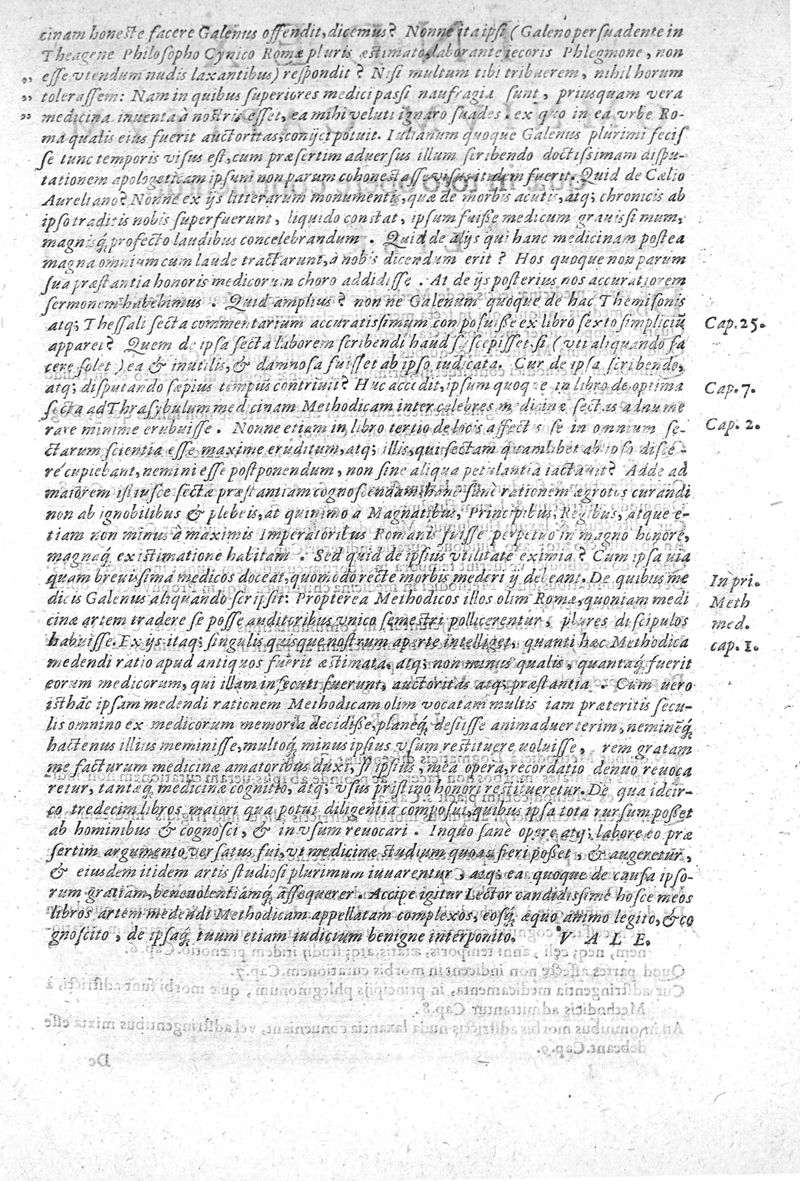 cinam honeste facere Galenus offendit, dicemus? Nonne ita ipsi (Galeno persuadente in
Theagene Philosopho Cynico Romæ pluris æstimato, laborante iecoris Phlegmone, non
„ esse vtendum nudis laxantibus) respondit? Nisi multum tibi tribuerem, nihil horum
„ tolerassem: Nam in quibus superiores medici passi naufragia sunt, priusquam vera
„ medicina inuenta à nostris esset, ea mihi veluti ignaro suades. ex quo in ea vrbe Ro-
ma qualis eius fuerit auctoritas, conijci potuit. Iulianum quoque Galenus plurimi fecis
se tunc temporis visus est, cum præsertim aduersus illum scribendo doctissimam dispu-
tationem apologeticam ipsum non parum cohonestasse visus itidem fuerit. Quid de Cælio
Aureliano? Nonne ex ijs litterarum monumentis, quæ de morbis acutis, atq; chronicis ab
ipso traditis nobis superfuerunt, liquido constat, ipsum fuisse medicum grauissimum,
magnisq́ profecto laudibus concelebrandum. Quid de alijs qui hanc medicinam postea
magna omnium cum laude tractarunt, à nobis dicendum erit? Hos quoque non parum
sua præstantia honoris medicorum choro addidisse. At de ijs posterius nos accuratiorem
sermonem habebimus. Quid amplius? non ne Galenum quoque de hac Themisonis
atq; Thessali secta commentarium accuratissimum composuisse ex libro sexto simpliciũ Cap. 25.
apparet? Quem de ipsa secta laborem scribendi haud suscepisset, si (vti aliquando fa
cere solet) ea & inutilis, & damnosa fuisset ab ipso iudicata. Cur de ipsa scribendo,
atq; disputando sæpius tempus contriuit? Huc accedit, ipsum quoque in libro de optima Cap. 7.
secta ad Thrasybulum medicinam Methodicam inter celebres medicinæ sectas adnume
rare minime erubuisse. Nonne etiam in libro tertio de locis affectis se in omnium se- Cap. 2.
ctarum scientia esse maxime eruditum, atq; illis, qui sectam quamlibet ab ipso disce-
re cupiebant, nemini esse postponendum, non sine aliqua petulantia iactauit? Adde ad
maiorem istiusce sectæ præstantiam cognoscendam, hanc sanè rationem ægrotos curandi
non ab ignobilibus & plebeis, at quinimo a Magnatibus, Principibus, Regibus, atque e-
tiam non minus à maximis Imperatoribus Romanis fuisse perpetuo in magno honore,
magnaq́ existimatione habitam. Sed quid de ipsius vtilitate eximia? Cum ipsa via
quam breuissima medicos doceat, quomodo recte morbis mederi debeant. De quibus me In pri.
dicis Galenus aliquando scripsit: Propterea Methodicos illos olim Romæ, quoniam medi Meth
cinæ artem tradere se posse auditoribus vnico semestri pollicerentur, plures discipulos med.
habuisse. Ex ijs itaq; singulis quisque nostrum aperte intelliget, quanti hæc Methodica cap. 1.
medendi ratio apud antiquos fuerit æstimata, atq; non minus qualis, quantaq́ fuerit
eorum medicorum, qui illam insecuti fuerunt, auctoritas atq; præstantia. Cum uero
isthãc ipsam medendi rationem Methodicam olim vocatam multis iam præteritis secu-
lis omnino ex medicorum memoria decidisse, planeq́ desiisse animaduerterim, neminẽq́
hactenus illius meminisse, multoq́ minus ipsius vsum restituere uoluisse, rem gratam
me facturum medicinæ amatoribus duxi, si ipsius, mea opera, recordatio denuo reuoca
retur, tantæq́ medicinæ cognitio, atq; vsus pristino honori restitueretur. De qua idcir-
co tredecim libros maiori qua potui diligentia composui, quibus ipsa tota rursum posset
ab hominibus & cognosci, & in vsum reuocari. Inquo sane opere atq; labore eo præ
sertim argumento versatus fui, vt medicinæ studium quoad fieri posset, & augeretur,
& eiusdem itidem artis studiosi plurimum iuuarentur, atq; ea quoque de causa ipso-
rum gratiam, beneuolentiamq́ assequerer. Accipe igitur Lector candidissime hosce meos
libros artem medendi Methodicam appellatam complexos, eosq́ æquo animo legito, & co
gnoscito, de ipsaq́ tuum etiam iudicium benigne interponito. VALE.